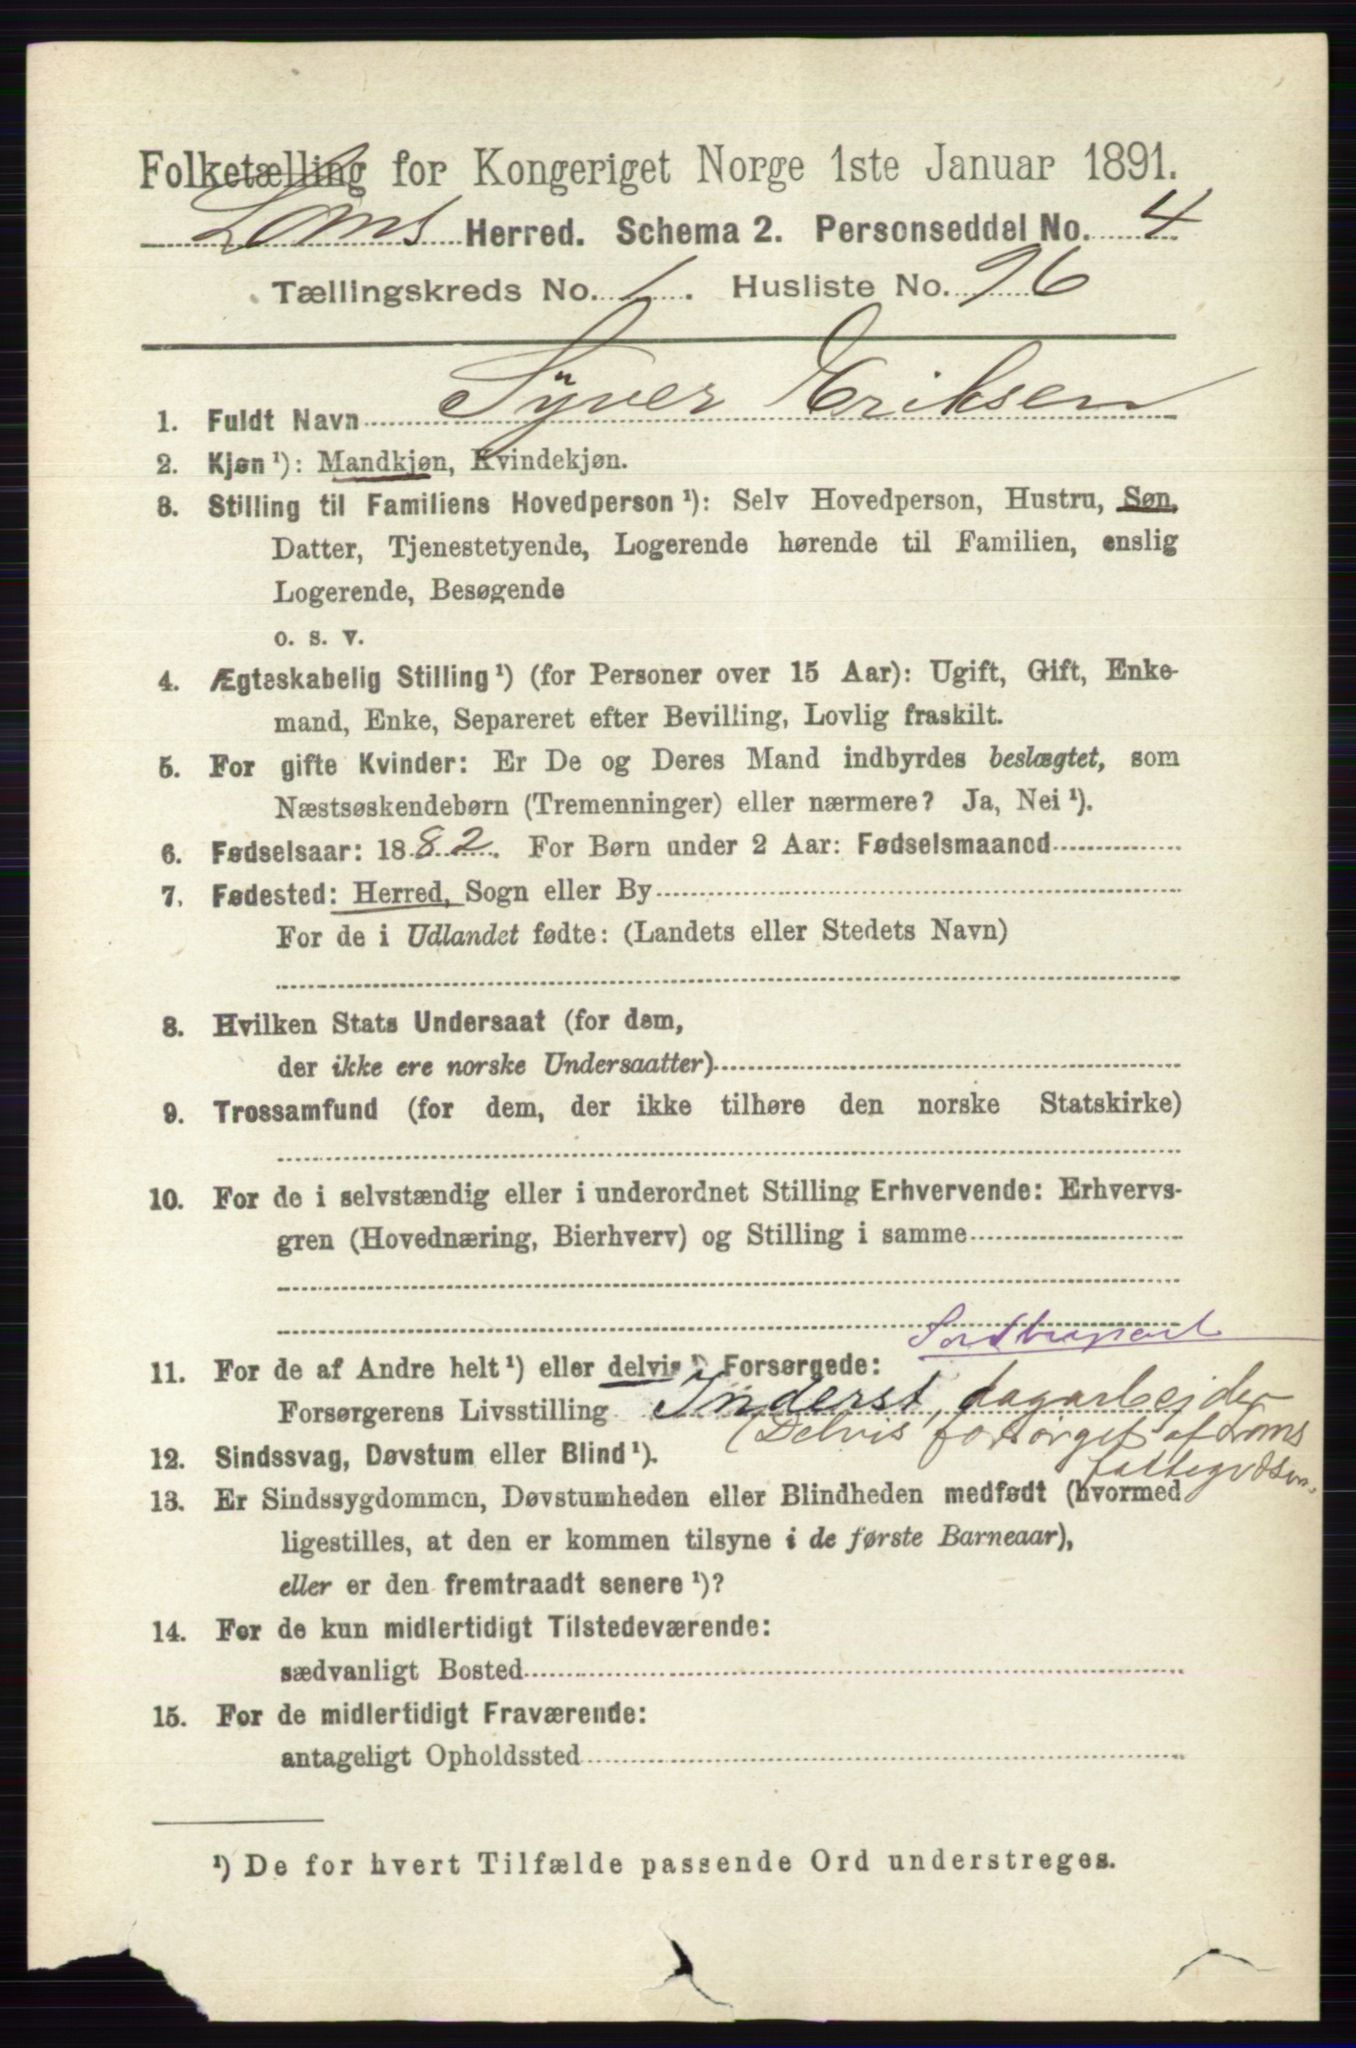 Folketælling for Kongeriget Norge 1ste Januar 1891.
Loms Herred. Schema 2. Personseddel No. 4
Tællingskreds No. 1. Husliste No. 96
1. Fuldt Navn Syver Eriksen
2. Kjøn ¹): Mandkjøn, Kvindekjøn.
3. Stilling til Familiens Hovedperson ¹): Selv Hovedperson, Hustru, Søn,
Datter, Tjenestetyende, Logerende hørende til Familien, enslig
Logerende, Besøgende
o. s. v.
4. Ægteskabelig Stilling ¹) (for Personer over 15 Aar): Ugift, Gift, Enke-
mand, Enke, Separeret efter Bevilling, Lovlig fraskilt.
5. For gifte Kvinder: Er De og Deres Mand indbyrdes beslægtet, som
Næstsøskendebørn (Tremenninger) eller nærmere? Ja, Nei ¹).
6. Fødselsaar: 1882. For Børn under 2 Aar: Fødselsmaaned
7. Fødested: Herred, Sogn eller By
For de i Udlandet fødte: (Landets eller Stedets Navn)
8. Hvilken Stats Undersaat (for dem,
der ikke ere norske Undersaatter)
9. Trossamfund (for dem, der ikke tilhøre den norske Statskirke)
10. For de i selvstændig eller i underordnet Stilling Erhvervende: Erhvervs-
gren (Hovednæring, Bierhverv) og Stilling i samme
11. For de af Andre helt ¹) eller delvis ¹) Forsørgede:
Forsørgerens Livsstilling Inderst, dagarbejder
(Delvis forsørget af Loms
fattigvæsen.
12. Sindssvag, Døvstum eller Blind ¹).
13. Er Sindssygdommen, Døvstumheden eller Blindheden medfødt (hvormed
ligestilles, at den er kommen tilsyne i de første Barneaar),
eller er den fremtraadt senere ¹)?
14. For de kun midlertidigt Tilstedeværende:
sædvanligt Bosted
15. For de midlertidigt Fraværende:
antageligt Opholdssted
¹) De for hvert Tilfælde passende Ord understreges.